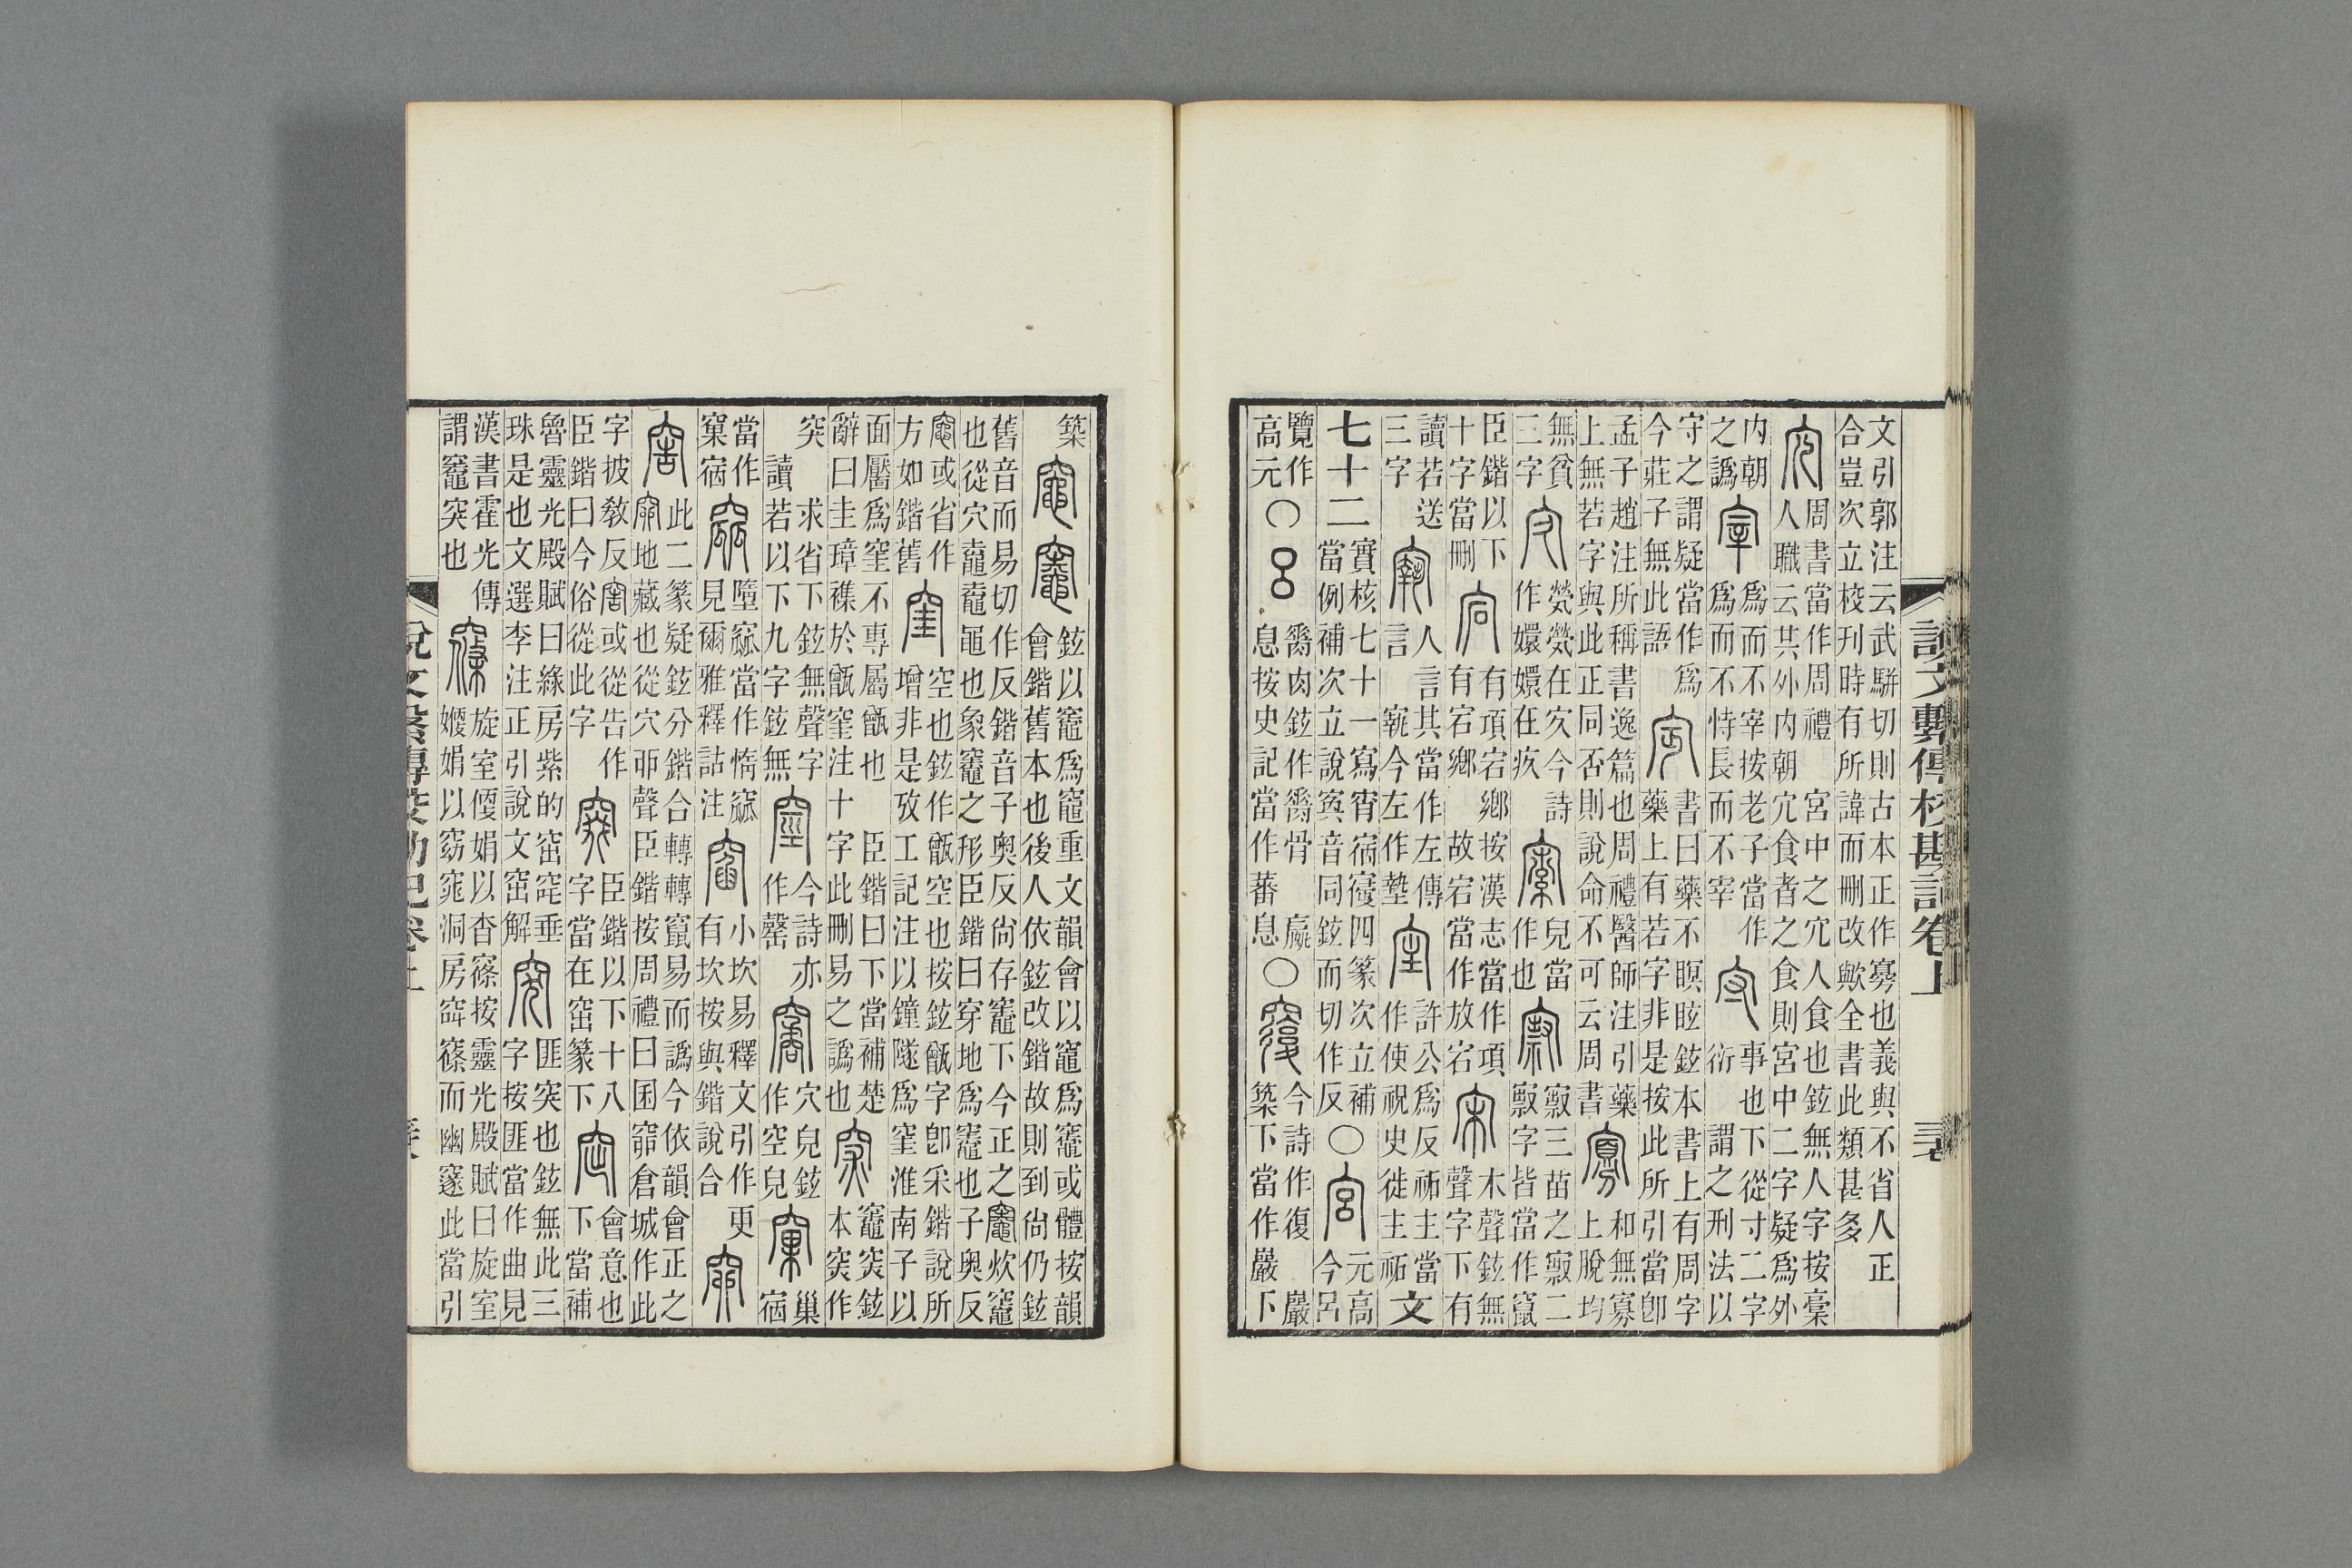 說文繫傳校勘記卷上 三七
文引郭注云武駢切則古本正作寡也義與不省人正
合豈次立校刊時有所諱而刪改歟全書此類甚多
宂 周書當作周禮 宮中之宂人食也鉉無人字按稾
人職云其外内朝宂食者之食則宮中二字疑爲外
内朝 宰 爲而不宰按老子當作 守 事也下從寸二字
之譌 爲而不恃長而不宰 衍 謂之刑法以
守之謂疑當作爲 書曰藥不瞑眩鉉本書上有周字
今莊子無此語 藥上有若字非是按此所引當卽
孟子趙注所稱書逸篇也周禮醫師注引藥 寡 和無寡
上無若字與此正同否則說命不可云周書 上脫均
無貧 㝌 煢煢在㝌今詩 索 皃當 三苗之二
三字 作嬛嬛在疚 作也 字皆當作竄
臣鍇以下 宕 有項宕鄉按漢志當作項 宋 木聲鉉無
十字當刪 有宕鄉故宕當作放宕 聲字下有
讀若送 人言其當作左傳 宔 許公爲反祏主當 文
三字 言 今左作墊 作作使祝史徙主祏
七十二 實核七十一寫宵㝛四篆次立補 ○ 宮 元高
當例補次立說音同鉉而切作反 今呂
覽作 ○ 呂 脊肉鉉作脊骨 嬴 ○ 今詩作復 嚴
高元 息按史記當作蕃息 築下當作嚴下
築 竈 鉉以竈爲竈重文韻會以竈爲竈或體按韻
會鍇舊本也後人依鉉改鍇故則到尙仍鉉
舊音而易切作反鍇音子奧反尙存竈下今正之竈炊竈
也從穴鼀鼀黽也象竈之形臣鍇曰穿地爲竈也子奧反
或省作 窐 空也鉉作甑空也按鉉甑字卽采鍇說所
方如鍇舊 增非是攷工記注以鐘隧爲窐淮南子以
面靨爲窐不專屬甑也 臣鍇曰下當補楚 突 竈突鉉
辭曰圭璋襍於甑窐注十字此刪易之譌也 本突作
突 求省下鉉無聲字 今詩亦 穴皃鉉 窠 巢
讀若以下九字鉉無 作罄 作空皃 㝛
當作 墮窳當作惰窳 窞 小坎易釋文引作更
窠㝛 見爾雅釋詁注 有坎按與鍇說合
窖 此二篆疑鉉分鍇合轉轉竄易而譌今依韻會正之
窌地藏也從穴丣聲臣鍇按周禮曰囷窌倉城作此
字披敎反窖或從告作 臣鍇以下十八 會意也
臣鍇曰今俗從此字 字當在窋篆下 下當補
魯靈光殿賦曰緣房紫的窋窀垂 匪突也鉉無此三
珠是也文選李注正引說文窋解 字按匪當作曲見
漢書霍光傳 窱 旋室㛹娟以杳窱按靈光殿賦曰旋室
謂竈突也 㛹娟以窈窕洞房窱而幽邃此當引